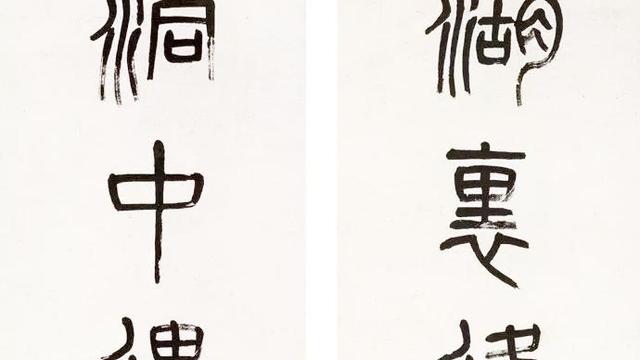 湖裏
洞中